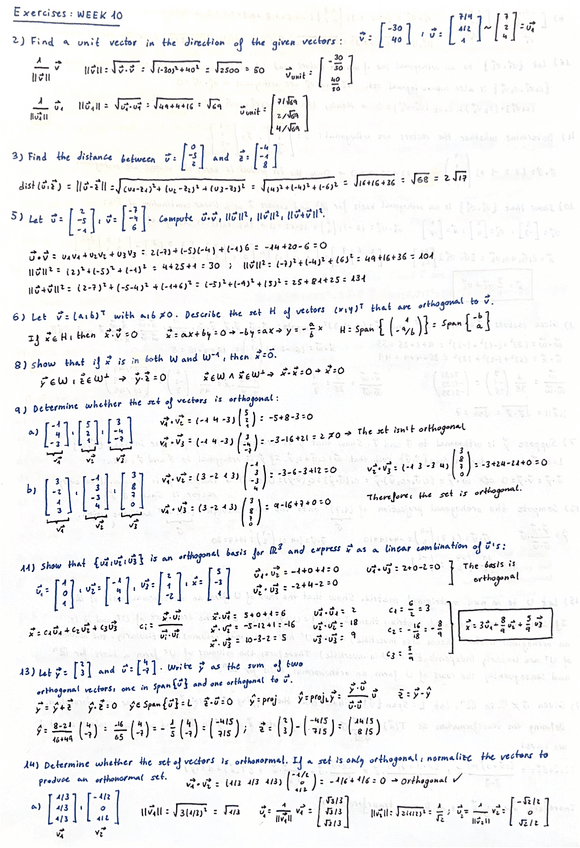 Exercises: WEEK 10
2) Find a unit vector in the direction of the given vectors: v⃗ = [-30 40] ; v⃗ = [7/4 1/2 1] ~ [7 2 4] = v⃗₁
1/||v⃗|| v⃗   ||v⃗|| = √(v⃗·v⃗) = √((-30)²+40²) = √2500 = 50   v⃗unit = [-30/50 40/50]
1/||v⃗₁|| v⃗₁   ||v⃗₁|| = √(v⃗₁·v⃗₁) = √(49+4+16) = √69   v⃗unit = [7/√69 2/√69 4/√69]
3) Find the distance between u⃗ = [0 -5 2] and z⃗ = [-4 -1 8]
dist(u⃗,z⃗) = ||u⃗-z⃗|| = √((u₁-z₁)²+(u₂-z₂)²+(u₃-z₃)²) = √((4)²+(-4)²+(-6)²) = √(16+16+36) = √68 = 2√17
5) Let u⃗ = [2 -5 -1] , v⃗ = [-7 -4 6]. Compute u⃗·v⃗, ||u⃗||², ||v⃗||², ||u⃗+v⃗||².
u⃗·v⃗ = u₁v₁+u₂v₂+u₃v₃ = 2(-7)+(-5)(-4)+(-1)6 = -14+20-6=0
||u⃗||² = (2)²+(-5)²+(-1)² = 4+25+1 = 30 ; ||v⃗||² = (-7)²+(-4)²+(6)² = 49+16+36 = 101
||u⃗+v⃗||² = (2-7)²+(-5-4)²+(-1+6)² = (-5)²+(-9)²+(5)² = 25+81+25 = 131
6) Let v⃗ = (a,b)ᵀ with a,b ≠ 0. Describe the set H of vectors (x,y)ᵀ that are orthogonal to v⃗.
If x⃗ ∈ H, then x⃗·v⃗ = 0   x⃗ = ax+by = 0 → -by = ax → y = -a/b x   H = Span{(1 -a/b)} = Span{-b a}
8) Show that if x⃗ is in both W and W⊥, then x⃗ = 0⃗.
y⃗ ∈ W ; z⃗ ∈ W⊥ → y⃗·z⃗ = 0   x⃗ ∈ W ∧ x⃗ ∈ W⊥ → x⃗·x⃗ = 0 → x⃗ = 0
9) Determine whether the set of vectors is orthogonal:
a) [-1 4 -3] , [5 2 1] , [3 -4 -7]   v⃗₁·v⃗₂ = (-1 4 -3)(5 2 1) = -5+8-3=0
v⃗₁·v⃗₃ = (-1 4 -3)(3 -4 -7) = -3-16+21 = 2 ≠ 0 → The set isn't orthogonal
v⃗₁ v⃗₂ v⃗₃
b) [3 -2 1 3] , [-1 3 -3 4] , [3 8 7 0]   v⃗₁·v⃗₂ = (3 -2 1 3)(-1 3 -3 4) = -3-6-3+12=0   v⃗₂·v⃗₃ = (-1 3 -3 4)(3 8 7 0) = -3+24-21+0=0
v⃗₁·v⃗₃ = (3 -2 1 3)(3 8 7 0) = 9-16+7+0=0   Therefore, the set is orthogonal.
v⃗₁ v⃗₂ v⃗₃
11) Show that {u⃗₁,u⃗₂,u⃗₃} is an orthogonal basis for and express x⃗ as a linear combination of u⃗'s:
u⃗₁ = [1 0 1] , u⃗₂ = [-1 4 1] , u⃗₃ = [2 1 -2] , x⃗ = [5 -3 1]   u⃗₁·u⃗₂ = -1+0+1=0   u⃗₁·u⃗₃ = 2+0-2=0   The basis is
u⃗₂·u⃗₃ = -2+4-2=0   orthogonal
x⃗ = c₁u⃗₁+c₂u⃗₂+c₃u⃗₃   cᵢ = x⃗·u⃗ᵢ/u⃗ᵢ·u⃗ᵢ   x⃗·u⃗₁ = 5+0+1=6   u⃗₁·u⃗₁ = 2   c₁ = 6/2 = 3
x⃗·u⃗₂ = -5-12+1=-16   u⃗₂·u⃗₂ = 18   c₂ = -16/18 = -8/9   x⃗ = 3u⃗₁ + 8/9 u⃗₂ + 5/9 u⃗₃
x⃗·u⃗₃ = 10-3-2=5   u⃗₃·u⃗₃ = 9   c₃ = 5/9
13) Let y⃗ = [2 3] and u⃗ = [4 -7]. Write y⃗ as the sum of two
orthogonal vectors, one in Span{u⃗} and one orthogonal to u⃗.
y⃗ = ŷ+z⃗   ŷ·z⃗ = 0   ŷ ∈ Span{u⃗} = L   z⃗·u⃗ = 0   ŷ = proj   ŷ = projʟ y⃗ = y⃗·u⃗/u⃗·u⃗ u⃗   z⃗ = y⃗-ŷ
ŷ = 8-21/16+49 (4 -7) = -16/65 (4 -7) = -1/5 (4 -7) = (-4/5 7/5) ; z⃗ = (2 3) - (-4/5 7/5) = (14/5 8/5)
14) Determine whether the set of vectors is orthonormal. If a set is only orthogonal, normalize the vectors to
produce an orthonormal set.   v⃗₁·v⃗₂ = (1/3 1/3 1/3)(-1/2 0 1/2) = -1/6+1/6 = 0 → Orthogonal ✓
a) [1/3 1/3 1/3] , [-1/2 0 1/2]   ||v⃗₁|| = √(3(1/3)²) = √1/3   u⃗₁ = 1/||v⃗₁|| v⃗₁ = [√3/3 √3/3 √3/3]   ||v⃗₂|| = √(2(1/2)²) = 1/√2 ; u⃗₂ = 1/||v⃗₂|| v⃗₂ = [-√2/2 0 √2/2]
v⃗₁ v⃗₂